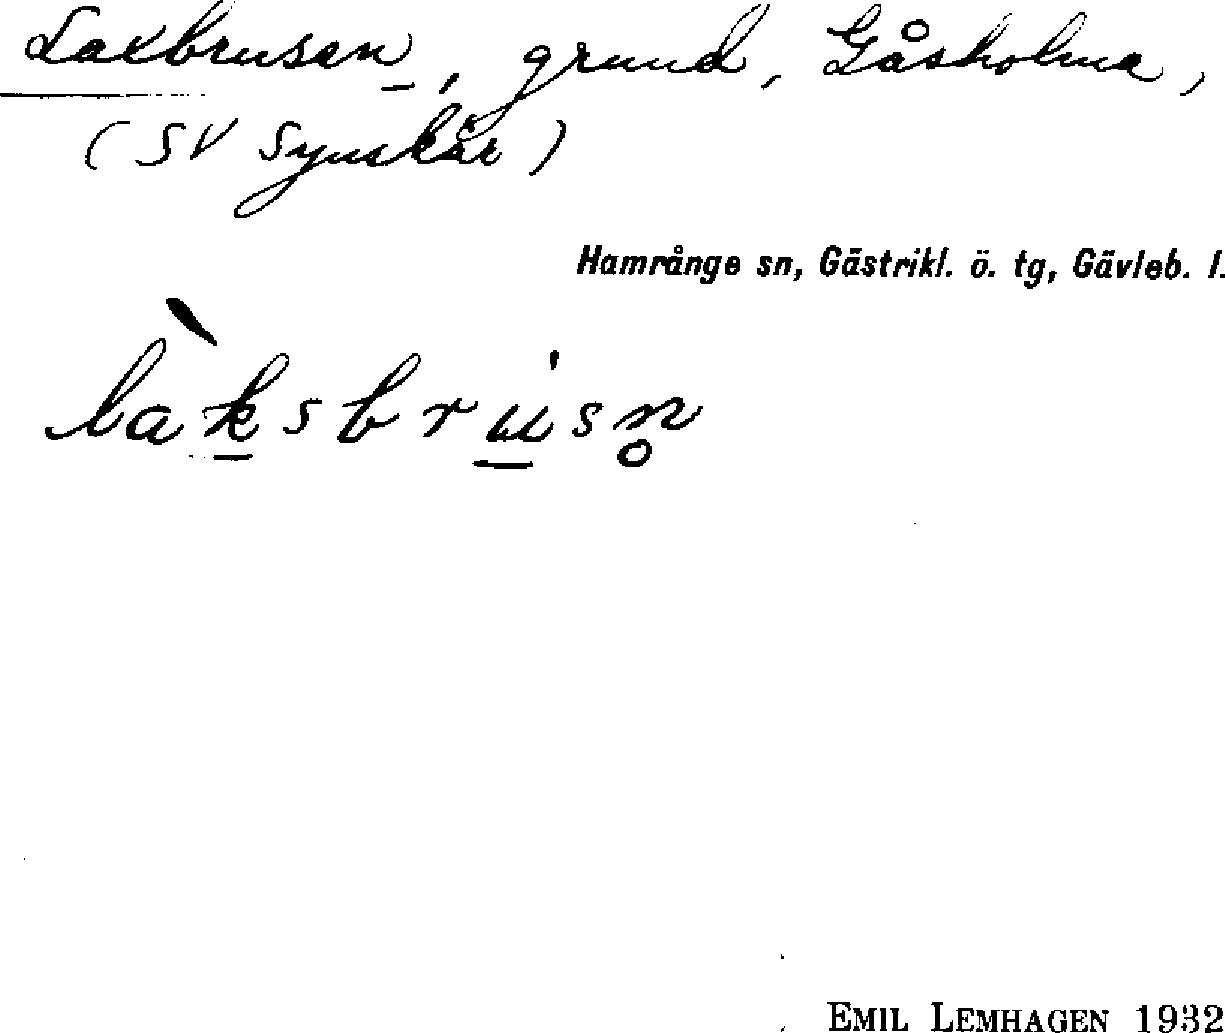 Laxbrusen, grund, Gåsholma,
(SV Synskär)
Hamrånge sn, Gästrikl. ö. tg, Gävleb. l.
làksbrusn̥
EMIL LEMHAGEN 1932